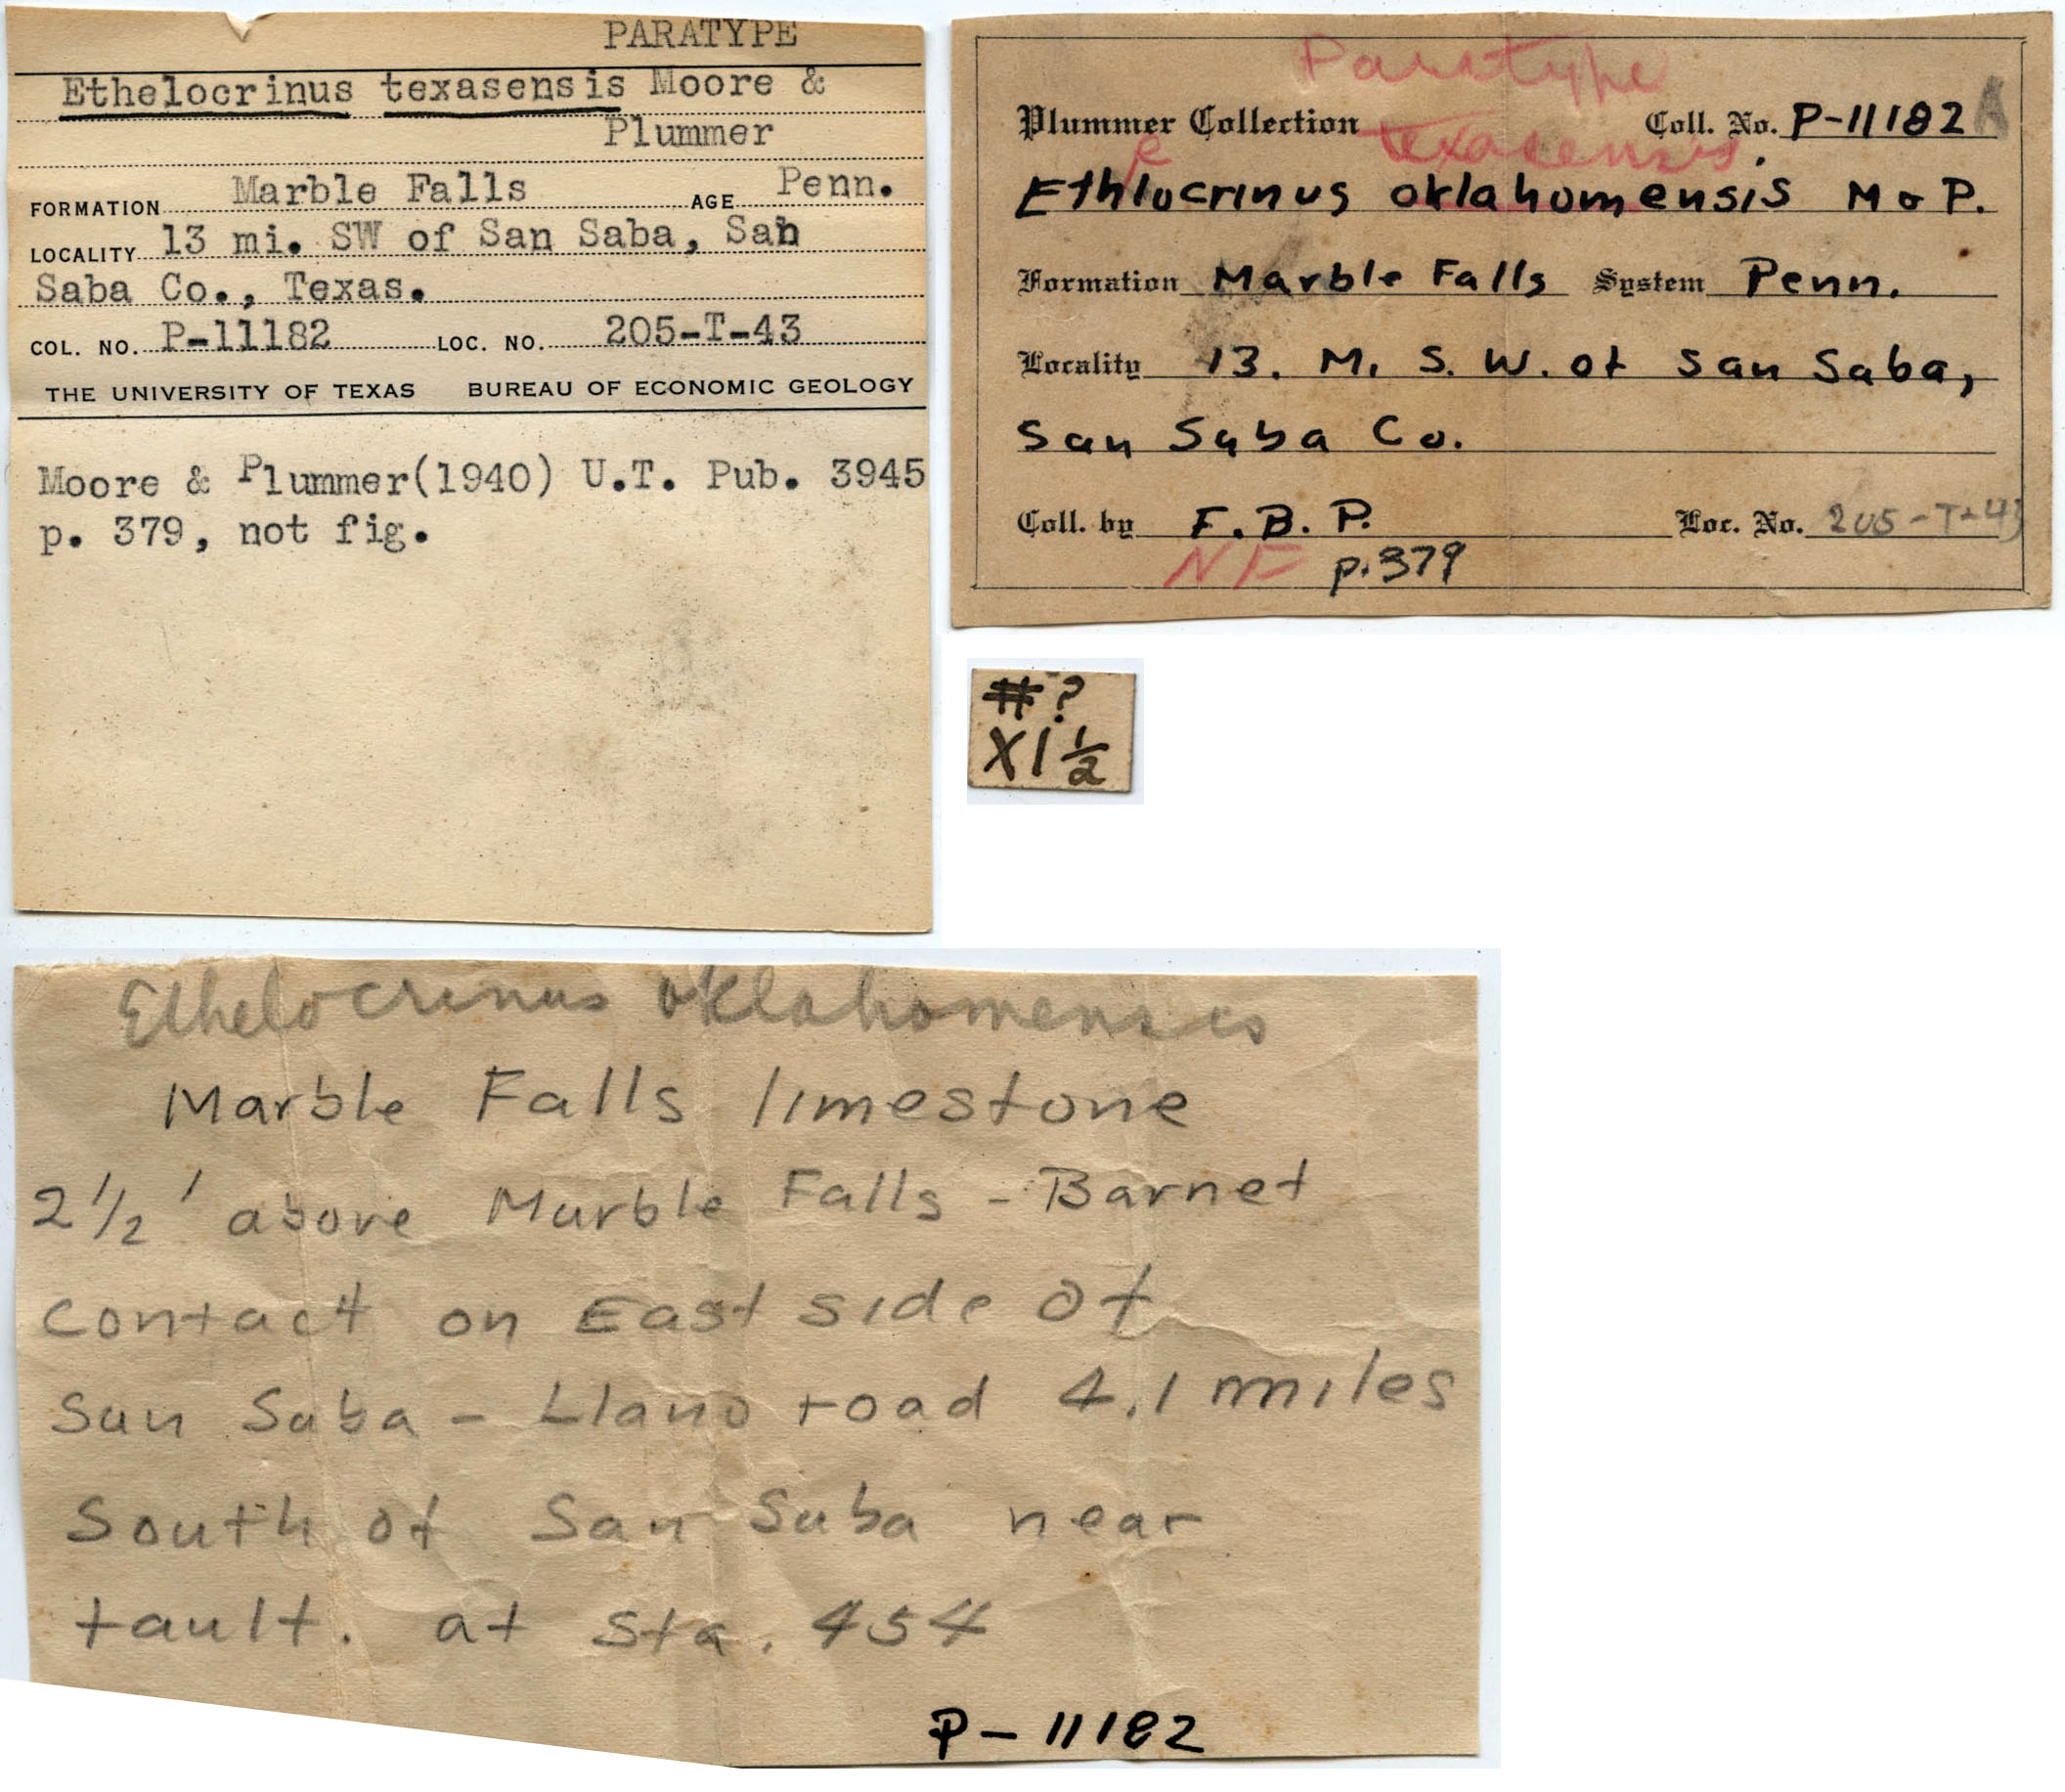 PARATYPE
Ethelocrinus texasensis Moore &
Plummer
FORMATION Marble Falls AGE Penn.
LOCALITY 13 mi. SW of San Saba, San
Saba Co., Texas.
COL. NO. P-11182 LOC. NO. 205-T-43
THE UNIVERSITY OF TEXAS BUREAU OF ECONOMIC GEOLOGY
Moore & Plummer(1940) U.T. Pub. 3945
p. 379, not fig.
Paratype
Plummer Collection Coll. No. P-11182 A
e texasensis
Ethlocrinus oklahomensis M & P.
Formation Marble Falls System Penn.
Locality 13. M. S. W. of San Saba,
San Saba Co.
Coll. by F. B. P. Loc. No. 205-T-43
NF p. 379
#?
X1 1/2
Ethelocrinus oklahomensis
Marble Falls limestone
2 1/2' above Marble Falls - Barnet
contact on East side of
San Saba - Llano road 4.1 miles
South of San Saba near
fault. at Sta. 454
P-11182